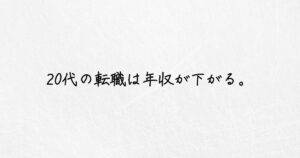 20代の転職は年収が下がる。